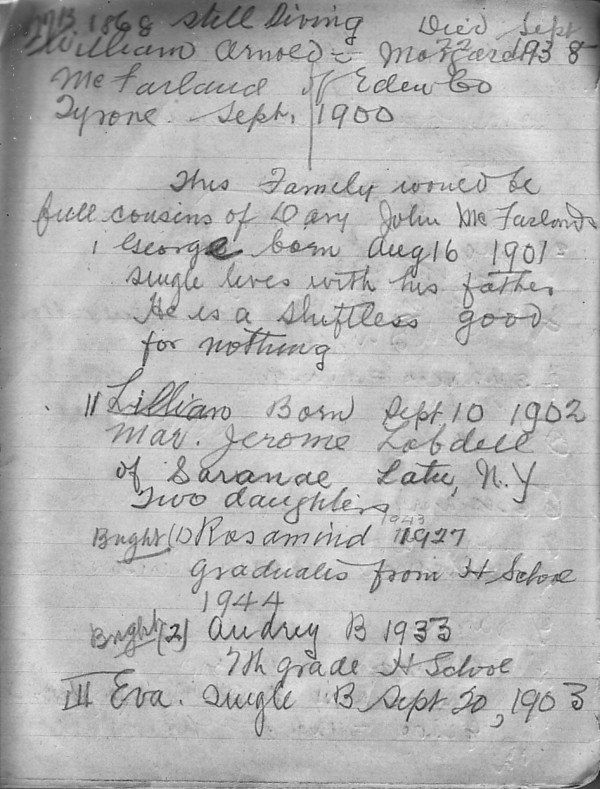 B 1868 still Living Died Sept
William Arnold = Mo 1938
McFarland of Eden Co
Tyrone Sept. 1900
This Family would be
full cousins of Dary John McFarlands
1 George born Aug 16 1901
single lives with his father
He is a shiftless good
for nothing
II Lillian Born Sept 10 1902
Mar. Jerome Lobdell
of Saranac Lake, N.Y
Two daughters
1943
Bright (1) Rosamind 1927
graduates from H School
1944
Bright (2) Audrey B 1933
7th grade H School
III Eva. single B Sept 20, 1903